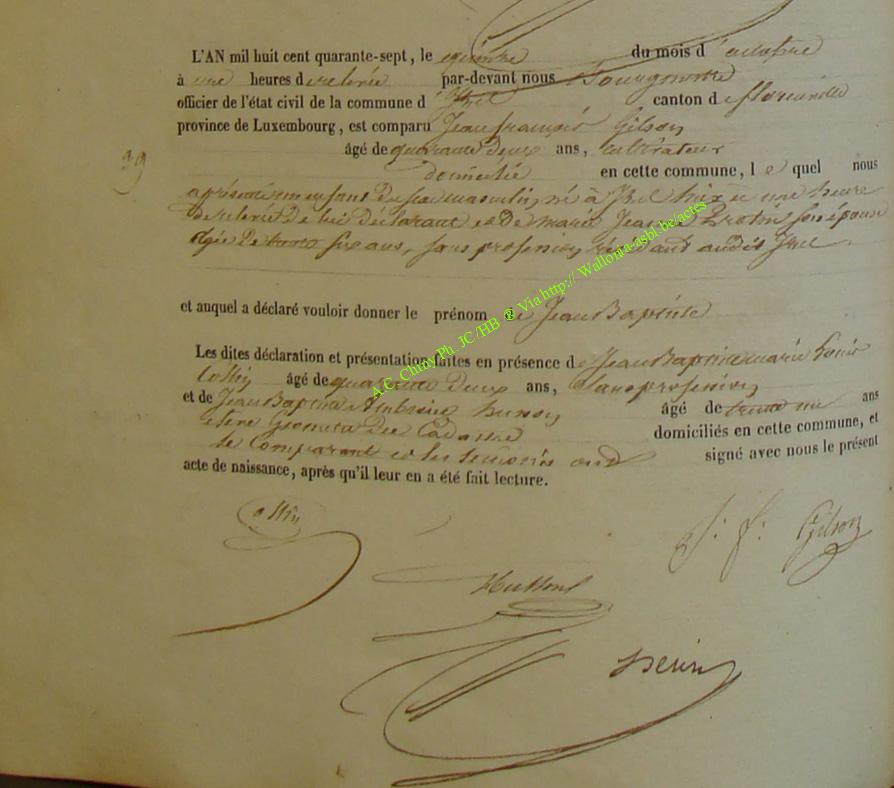 L'AN mil huit cent quarante-sept, le quinze du mois d'octobre
à une heures de relevée par-devant nous Bourgmestre
officier de l'état civil de la commune d'Izel canton de florenville
province de Luxembourg, est comparu Jean françois Gilson
39
âgé de quarante deux ans, cultivateur
domicilié en cette commune, le quel nous
a présenté un enfant du sexe masculin, né à Izel à une heure
de relevée de lui déclarant et de marie Jeanne son épouse
âgée de trente six ans, sans profession, résidant audit Izel
et auquel a déclaré vouloir donner le prénom de Jean Baptiste
Les dites déclaration et présentation faites en présence de Jean Baptiste marie Louis
Collin âgé de quarante deux ans, sans profession
et de Jean Baptiste Ambroise husson âgé de trente un ans
Géomètre du Cadastre domiciliés en cette commune, et
le Comparant et les témoins ont signé avec nous le présent
acte de naissance, après qu'il leur en a été fait lecture.
Collin
J: f: Gilson
Husson
A.C. Chiny Ph. JC /HB ® Via http:// Wallonia-asbl.be/actes